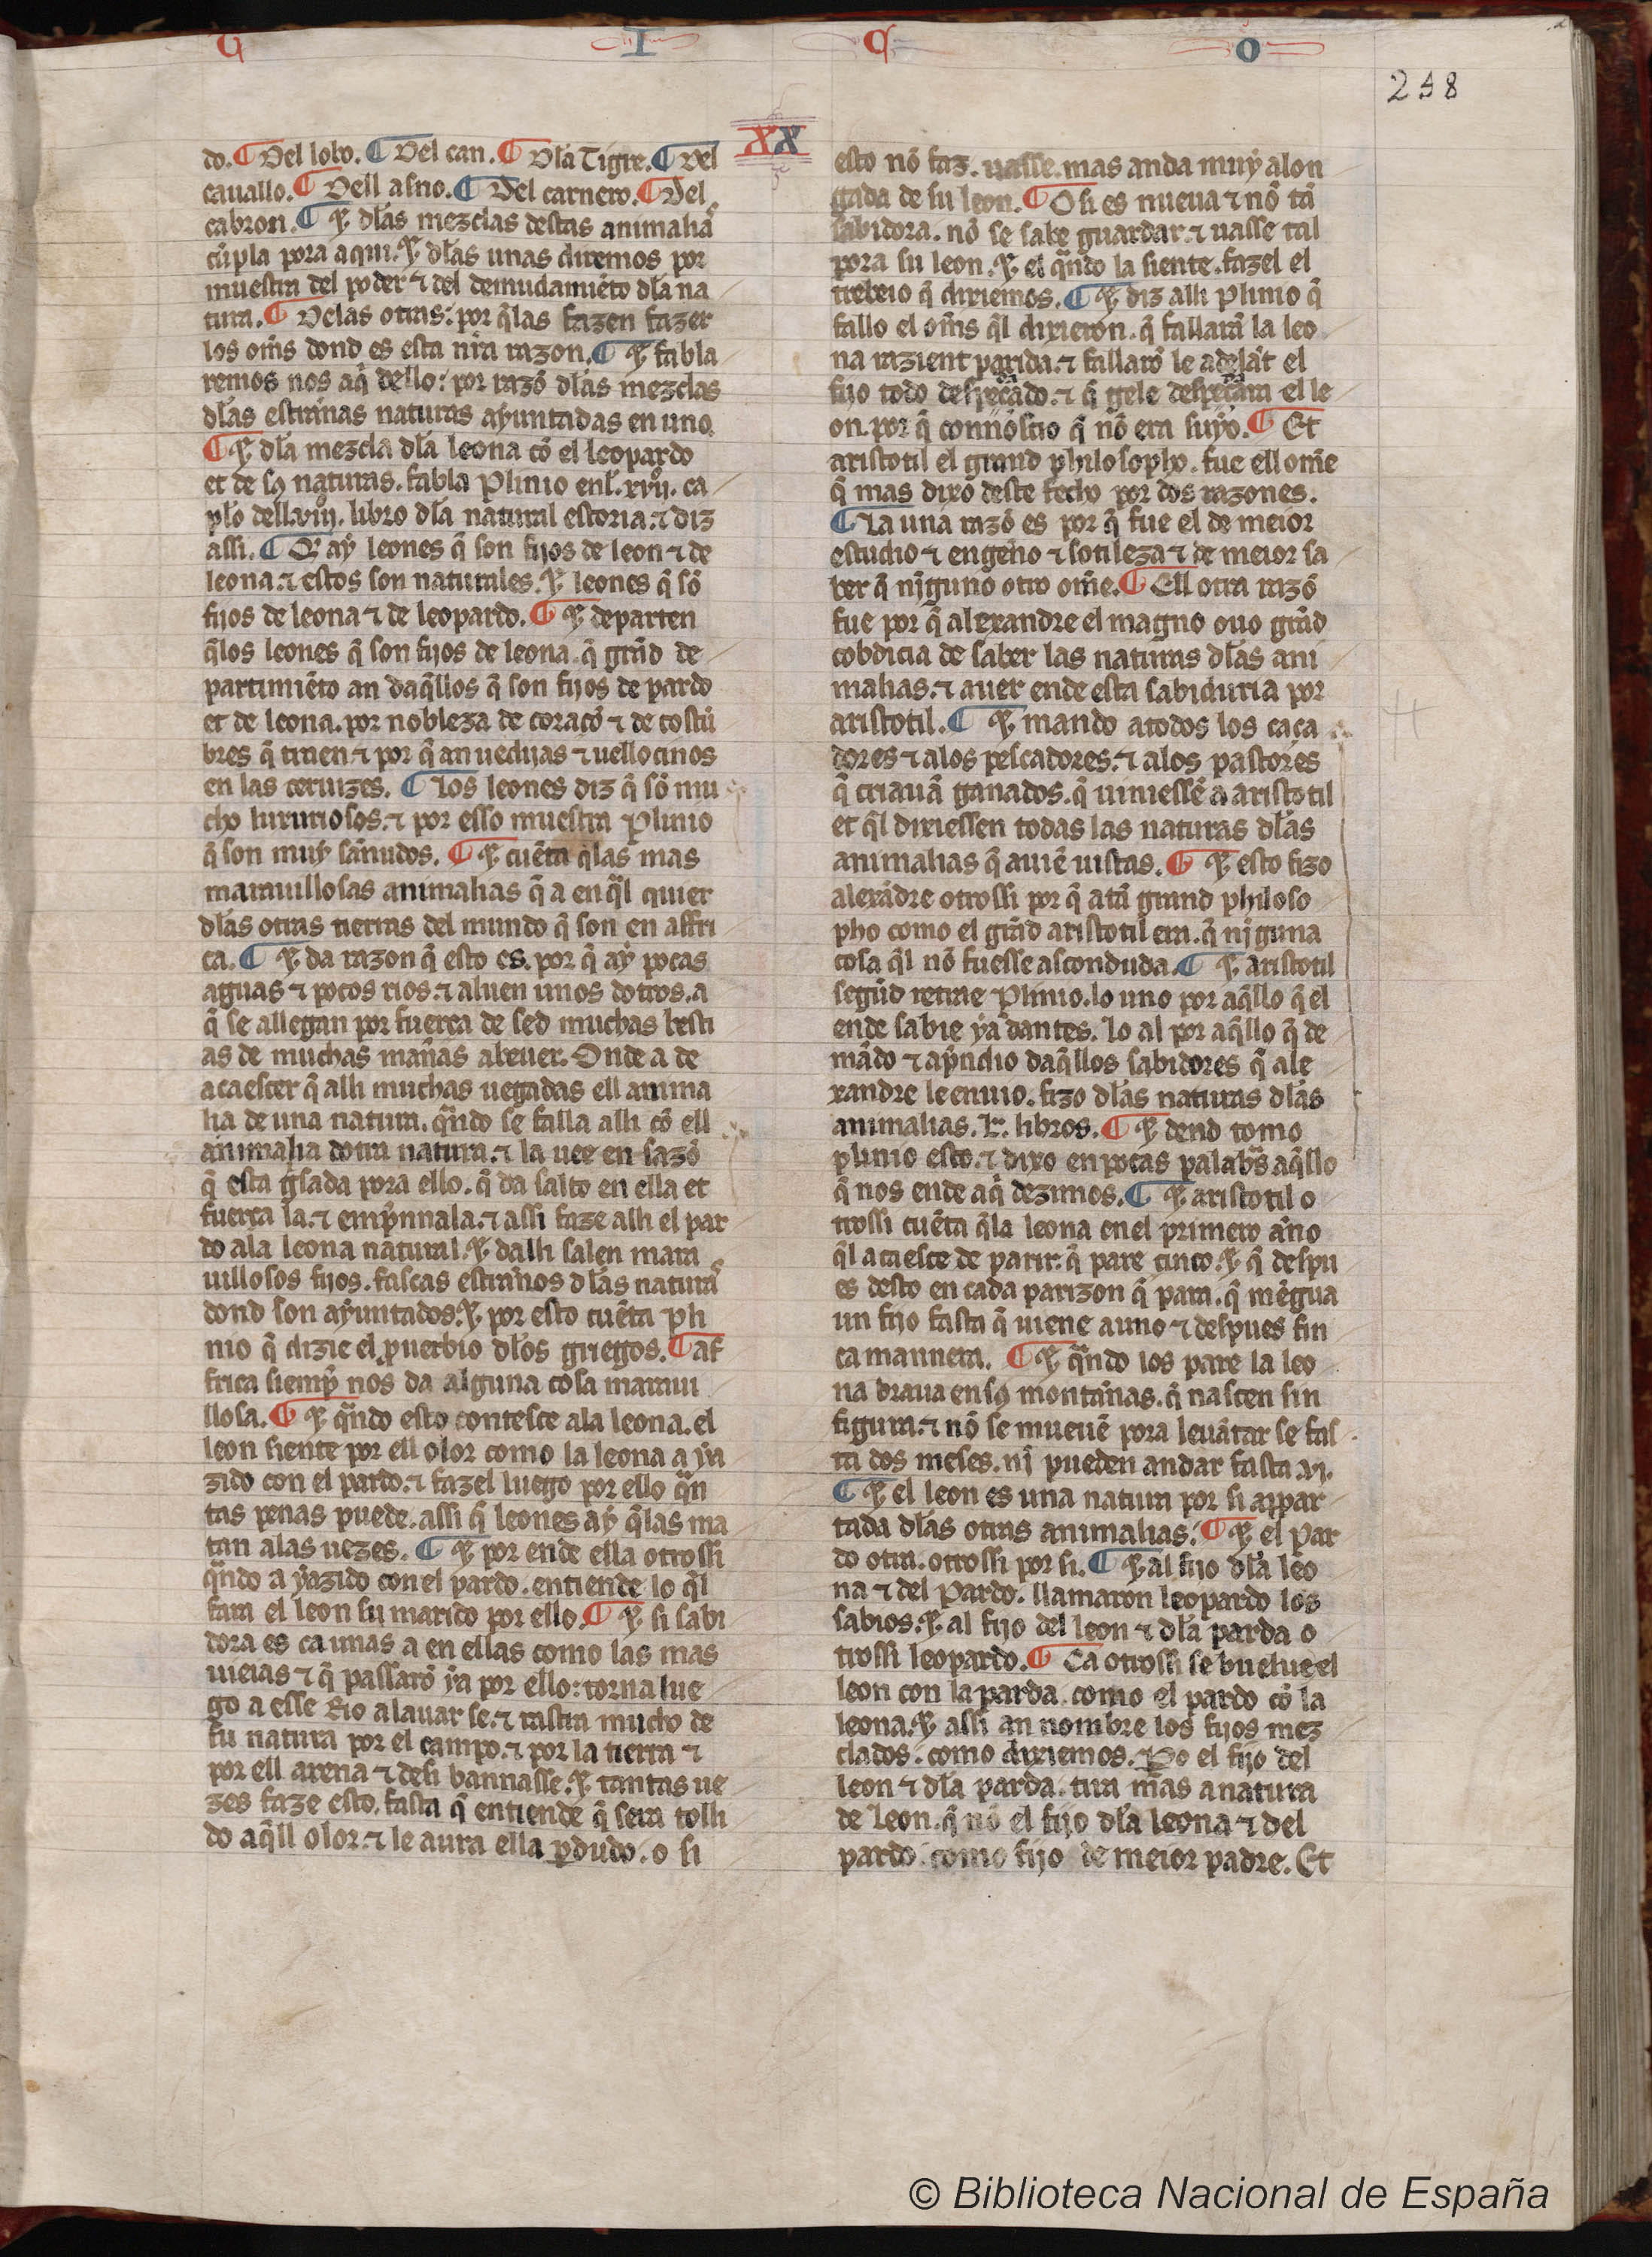 G I ¶ O
238
XX
do. ¶ Del lobo. ¶ Del can. ¶ Dła Tigre. ¶ Del
cauallo. ¶ Dell asno. ¶ Del carnero. ¶ Del
cabron. ¶ ⁊ dłas mezclas destas animalias
cũpla pora aqui. ⁊ dłas unas diremos por
muestra del poder ⁊ del demudamiẽto dła na
tura. ¶ Delas otras: por q̃ las fazen fazer
los om̃s dond es esta nr̃a razon. ¶ ⁊ fabla
remos nos aq̃ dello: por razõ dłas mezclas
dłas estrannas naturas ayuntadas en uno.
¶ ⁊ dła mezcla dła leona cõ el leopardo
et de sꝯ naturas. fabla Plinio enł. xvij. ca
pło dell. viij. libro dła natural estoria. ⁊ diz
assi. ¶ Q̃ ay leones q̃ son fijos de leon ⁊ de
leona. ⁊ estos son naturales. ⁊ leones q̃ sõ
fijos de leona ⁊ de leopardo. ¶ ⁊ departen
q̃los leones q̃ son fijos de leona. q̃ grãd de
partimiẽto an daq̃llos q̃ son fijos de pardo
et de leona. por nobleza de coraçõ ⁊ de costũ
bres q̃ traen ⁊ por q̃ an uedijas ⁊ uellocinos
en las ceruizes. ¶ Los leones diz q̃ sõ mu
cho luxuriosos. ⁊ por esso muestra Plinio
q̃ son muy sannudos. ¶ ⁊ cuẽta q̃las mas
marauillosas animalias q̃ a en q̃l quier
dłas otras tierras del mundo q̃ son en affri
ca. ¶ ⁊ da razon q̃ esto es. por q̃ ay pocas
aguas ⁊ pocos rios. ⁊ aluen unos dotros. a
q̃ se allegan por fuerça de sed muchas besti
as de muchas mañas abeuer. Onde a de
acaescer q̃ alli muchas uegadas ell anima
lia de una natura. q̃ndo se falla alli cõ ell
animalia dotra natura. ⁊ la uee en sazõ
q̃ esta guisada pora ello. q̃ da salto en ella et
fuerça la. ⁊ emp̃nnala. ⁊ assi faze alli el par
do ala leona natural. ⁊ dalli salen mara
uillosos fijos. fascas estrannos dłas naturas
dond son ayuntados. ⁊ por esto cuẽta pli
nio q̃ dizie el ꝓuerbio dłos griegos. ¶ af
frica siemp̃ nos da alguna cosa maraui
llosa. ¶ ⁊ q̃ndo esto contesce ala leona. el
leon siente por ell olor como la leona a ya
zido con el pardo. ⁊ fazel luego por ello q̃n
tas penas puede. assi q̃ leones ay q̃las ma
tan alas uezes. ¶ ⁊ por ende ella otrossi
q̃ndo a yazido con el pardo. entiende lo q̃l
fara el leon su marido por ello. ¶ ⁊ si sabi
dora es ca unas a en ellas como las mas
uieias ⁊ q̃ passarõ ya por ello: torna lue
go a esse Rio alauar se. ⁊ rastra mucho de
su natura por el campo. ⁊ por la tierra ⁊
por ell arena ⁊ desi bannasse. ⁊ tantas ue
zes faze esto. fasta q̃ entiende q̃ sera tolli
do aq̃ll olor. ⁊ le aura ella ꝑdudo. o si
esto nõ faz. uasse. mas anda muy alon
gada de su leon. ¶ O si es nueua ⁊ nõ tã
sabidora. nõ se sabe guardar. ⁊ uasse tal
pora su leon. ⁊ el q̃ndo la siente. fazel el
trebeio q̃ dixiemos. ¶ ⁊ diz alli Plinio q̃
fallo el om̃s q̃l dixieron. q̃ fallarã la leo
na razient parida. ⁊ fallarõ le adelãt el
fijo todo despeçado. ⁊ q̃ gele despeçara el le
on. por q̃ connosçio q̃ nõ era suyo. ¶ Et
aristotil el grand philosopho. fue ell om̃e
q̃ mas dixo deste fecho por dos razones.
¶ La una razõ es por q̃ fue el de meior
estudio ⁊ engeño ⁊ sotileza ⁊ de meior sa
ber q̃ njguno otro om̃e. ¶ Ell otra razõ
fue por q̃ alexandre el magno ouo grãd
cobdicia de saber las naturas dłas ani
malias. ⁊ auer ende esta sabiduria por
aristotil. ¶ ⁊ mando atodos los caça
dores ⁊ alos pescadores. ⁊ alos pastores
q̃ criauã ganados. q̃ uiniessẽ a aristotil
et q̃l dixiessen todas las naturas dłas
animalias q̃ auiẽ uistas. ¶ ⁊ esto fizo
alexãdre otrossi por q̃ atã grand philoso
pho como el grãd aristotil era. q̃ njguna
cosa q̃l nõ fuesse asconduda. ¶ ⁊ aristotil
segũd retrae Plinio. lo uno por aq̃llo q̃ el
ende sabie ya dantes. lo al por aq̃llo q̃ de
mãdo ⁊ ap̃ndio daq̃llos sabidores q̃ ale
xandre le enuio. fizo dłas naturas dłas
animalias. L. libros. ¶ ⁊ dend tomo
plinio esto. ⁊ dixo en pocas palabs̃ aq̃llo
q̃ nos ende aq̃ dezimos. ¶ ⁊ aristotil o
trossi cuẽta q̃la leona en el primero anno
q̃l acaesce de parir. q̃ pare cinco. ⁊ q̃ despu
es desto en cada parizon q̃ para. q̃ mẽgua
un fijo fasta q̃ uiene auno ⁊ despues fin
ca mannera. ¶ ⁊ q̃ndo los pare la leo
na braua en sꝯ montannas. q̃ nascen sin
figura. ⁊ nõ se mueuẽ pora leuãtar se fas
ta dos meses. nj pueden andar fasta .vj.
¶ ⁊ el leon es una natura por si appar
tada dłas otras animalias. ¶ ⁊ el par
do otra. otrossi por si. ¶ ⁊ al fijo dła leo
na ⁊ del Pardo. llamaron leopardo los
sabios. ⁊ al fijo del leon ⁊ dła parda o
trossi leopardo. ¶ Ca otrossi se buelue el
leon con la parda. como el pardo cõ la
leona. ⁊ assi an nombre los fijos mez
clados. como dixiemos. Po el fijo del
leon ⁊ dła parda. tira mas a natura
de Leon. q̃ nõ el fijo dła leona ⁊ del
pardo. como fijo de meior padre. Et
© Biblioteca Nacional de España